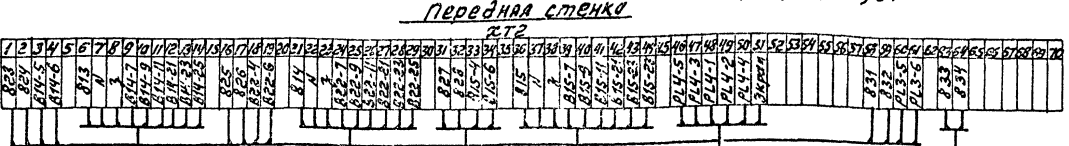 Передняя стенка
ХТ2
1 2 3 4 5 6 7 8 9 10 11 12 13 14 15 16 17 18 19 20 21 22 23 24 25 26 27 28 29 30 31 32 33 34 35 36 37 38 39 40 41 42 43 44 45 46 47 48 49 50 51 52 53 54 55 56 57 58 59 60 61 62 63 64 65 66 67 68 69 70
823 824 В14-5 В14-6 813 N В14-7 В14-9 В14-11 В14-21 В14-23 В14-25 825 826 В22-4 В22-6 814 N В22-7 В22-9 В22-11 В22-21 В22-23 В22-25 827 828 В15-4 В15-6 815 N В15-7 В15-9 В15-11 В15-21 В15-23 PL4-5 PL4-3 PL4-1 PL4-2 PL4-4 Экран 831 832 PL3-5 PL3-6 833 834